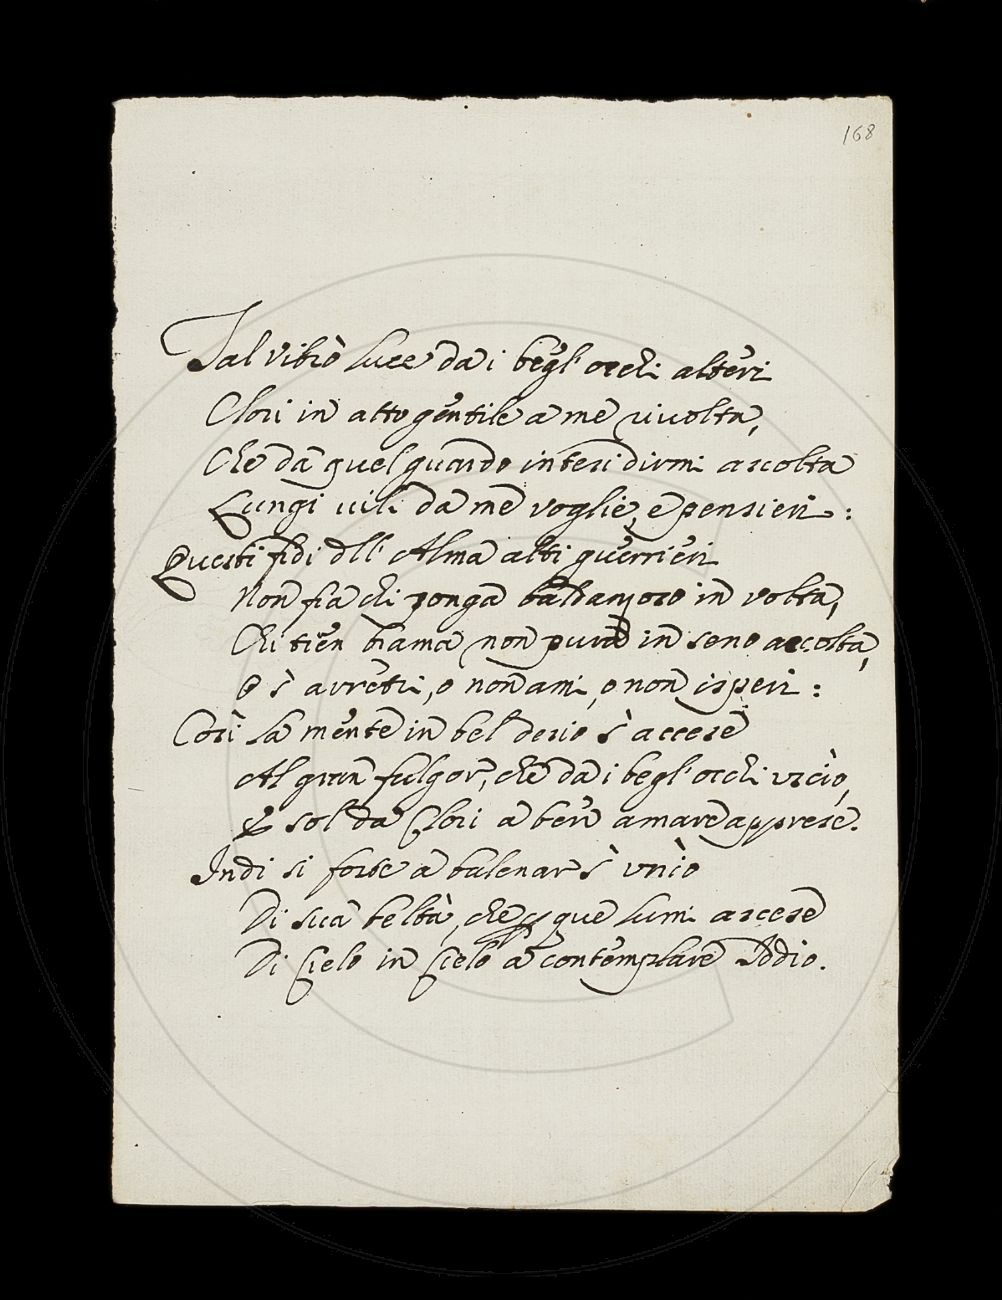 168
Tal vibrò luce da i begl' occhi alteri
Clori in atto gentile a me rivolta,
Che da quel guardo intesi dirmi ascolta
Lungi vili da me voglie, e pensieri:
Questi fidi dell' Alma alti guerrieri
Non fia chi ponga baldanzoso in volta,
Chi tien brama non pura in seno accolta,
O s' arretri, o non ami, o non isperi:
Così la mente in bel desio s' accese
Al gran fulgor, che da i begl' occhi uscio,
E sol da Clori a ben amare apprese.
Indi si forte a balenar s' unìo
Di sua beltà, che que lumi ascese
Di Cielo in Cielo a contemplare Iddio.